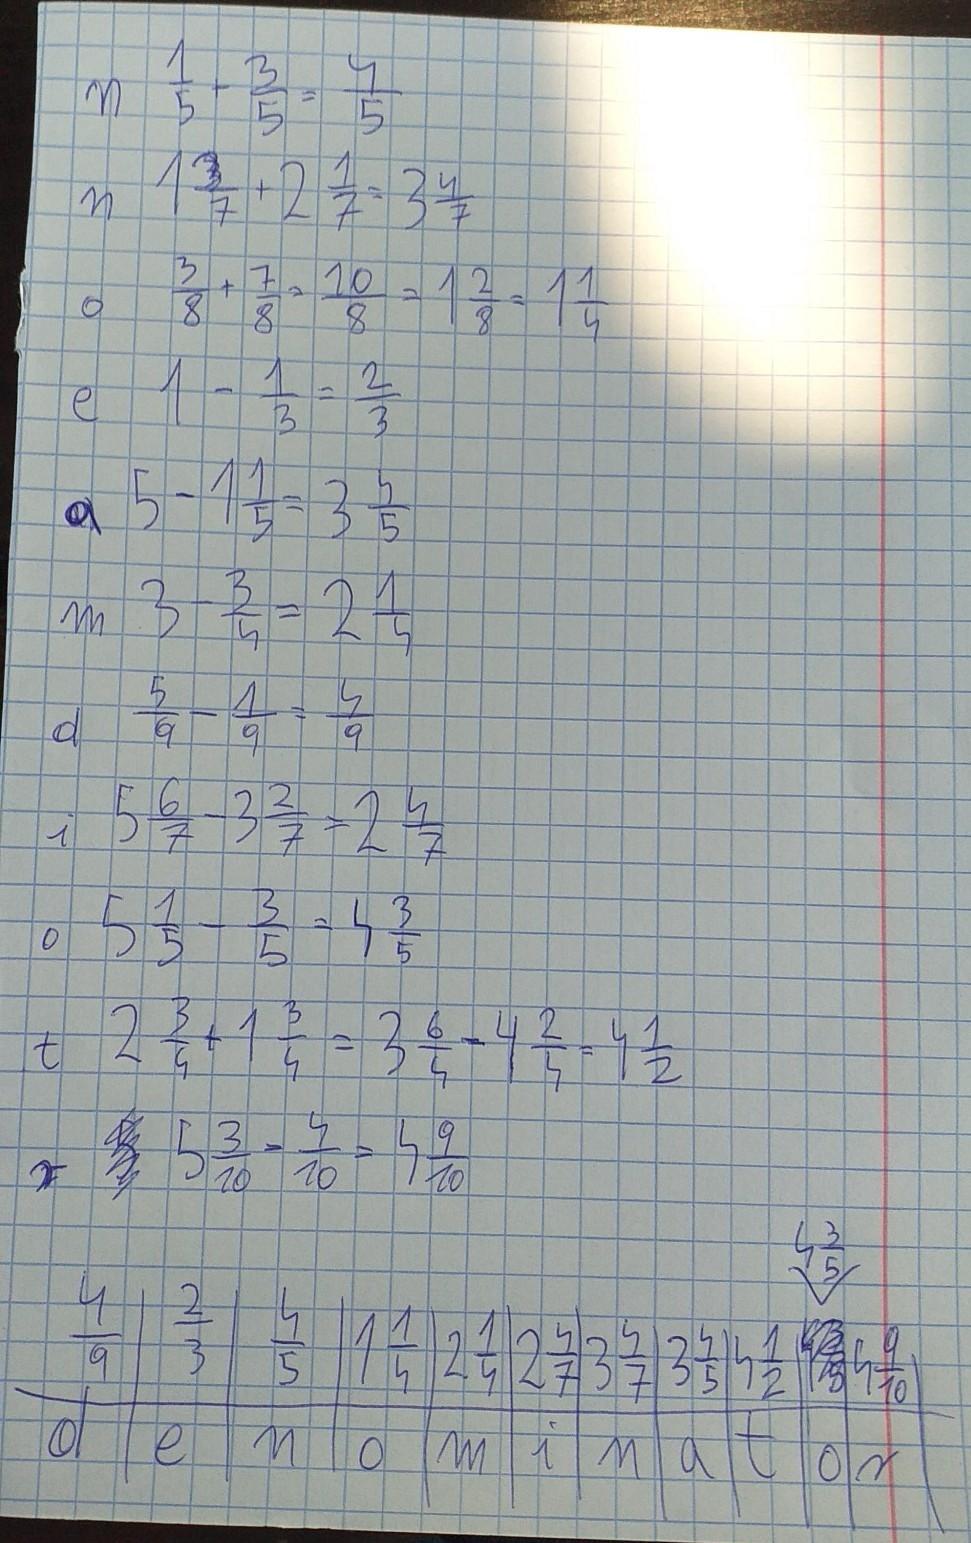 n 1/5 + 3/5 = 4/5
n 1 3/7 + 2 1/7 = 3 4/7
o 3/8 + 7/8 = 10/8 = 1 2/8 = 1 1/4
e 1 - 1/3 = 2/3
a 5 - 1 1/5 = 3 4/5
m 3 - 3/4 = 2 1/4
d 5/9 - 1/9 = 4/9
i 5 6/7 - 3 2/7 = 2 4/7
o 5 1/5 - 3/5 = 4 3/5
t 2 3/4 + 1 3/4 = 3 6/4 = 4 2/4 = 4 1/2
r 5 3/10 - 4/10 = 4 9/10
4 3/5
4/9 2/3 4/5 1 1/4 2 1/4 2 4/7 3 4/7 3 4/5 4 1/2 4 9/10
d e n o m i n a t o r